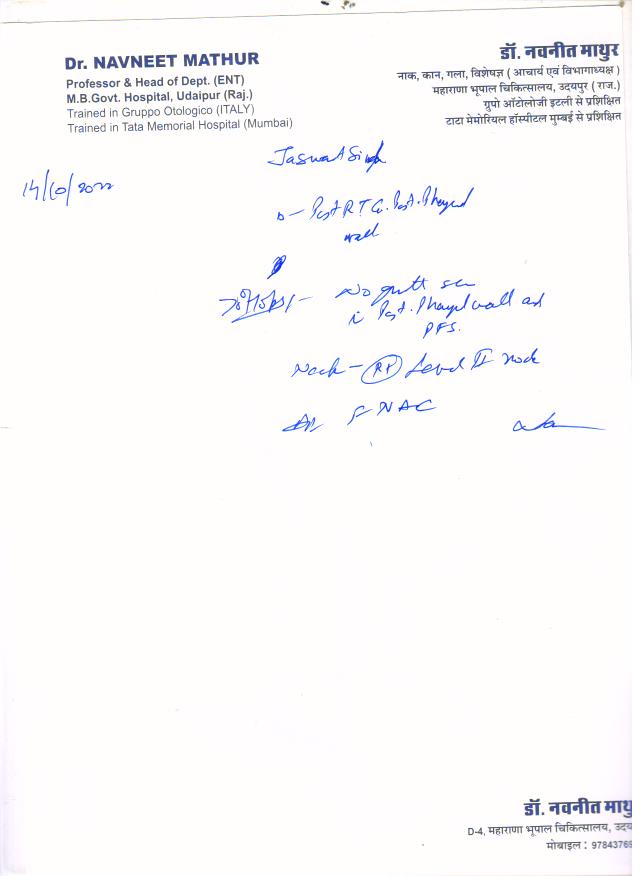 Dr. NAVNEET MATHUR
Professor & Head of Dept. (ENT)
M.B.Govt. Hospital, Udaipur (Raj.)
Trained in Gruppo Otologico (ITALY)
Trained in Tata Memorial Hospital (Mumbai)
डॉ. नवनीत माथुर
नाक, कान, गला, विशेषज्ञ ( आचार्य एवं विभागाध्यक्ष )
महाराणा भूपाल चिकित्सालय, उदयपुर ( राज.)
ग्रुपो ऑटोलोजी इटली से प्रशिक्षित
टाटा मेमोरियल हॉस्पीटल मुम्बई से प्रशिक्षित
Jaswant Singh
14/10/2022
Post R.T. Ca. Post. Pharyngeal
wall
No growth seen
in Post. Pharyngeal wall and
PFS.
Neck - Rt Level II node
FNAC
डॉ. नवनीत माथु
D-4, महाराणा भूपाल चिकित्सालय, उदय
मोबाइल : 9784376